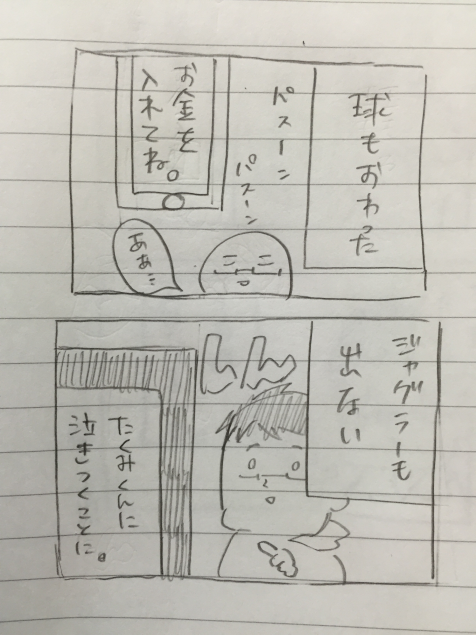 球もおわった
パスーン
パスーン
お金を
入れてね。
ああ…
ジャグラーも
出ない
しん
たくみくんに
泣きつくことに。